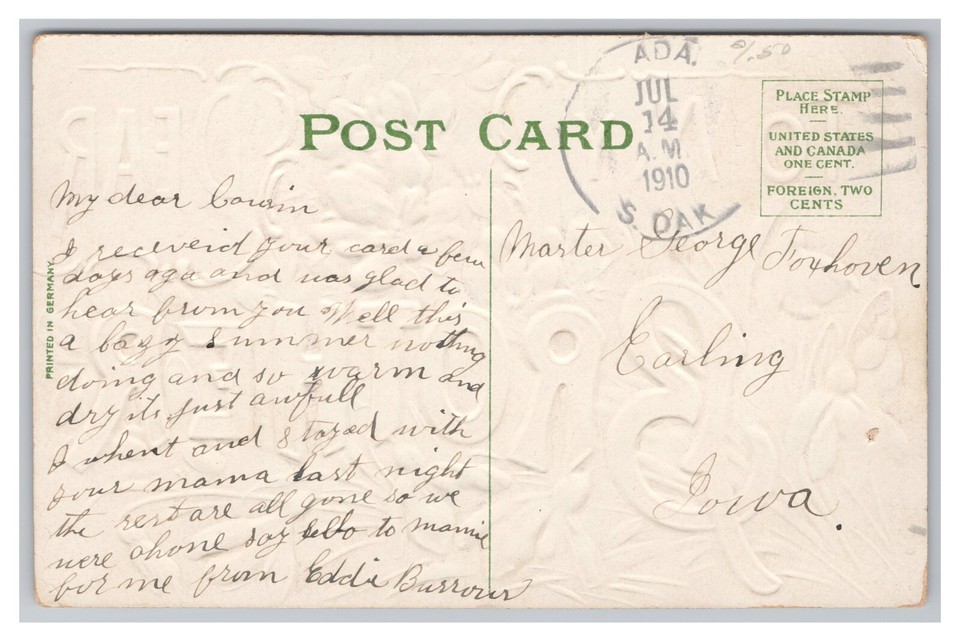 POST CARD
ADA.
JUL
14
A.M.
1910
S. DAK
PLACE STAMP
HERE.
UNITED STATES
AND CANADA
ONE CENT.
FOREIGN, TWO
CENTS
PRINTED IN GERMANY.
My dear Cousin
I receveid your card a few
days ago and was glad to
hear from you Well this
a lazy summer nothing
doing and so warm and
dry its just awfull
I whent and stayed with
your mama last night
the rest are all gone so we
were alone say hello to mamie
for me from Eddie
Master George Foxhoven
Earling
Iowa.